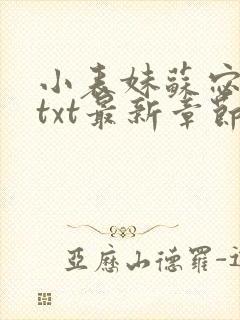 小表妹蘇宓
txt最新章節
亞歷山德羅-